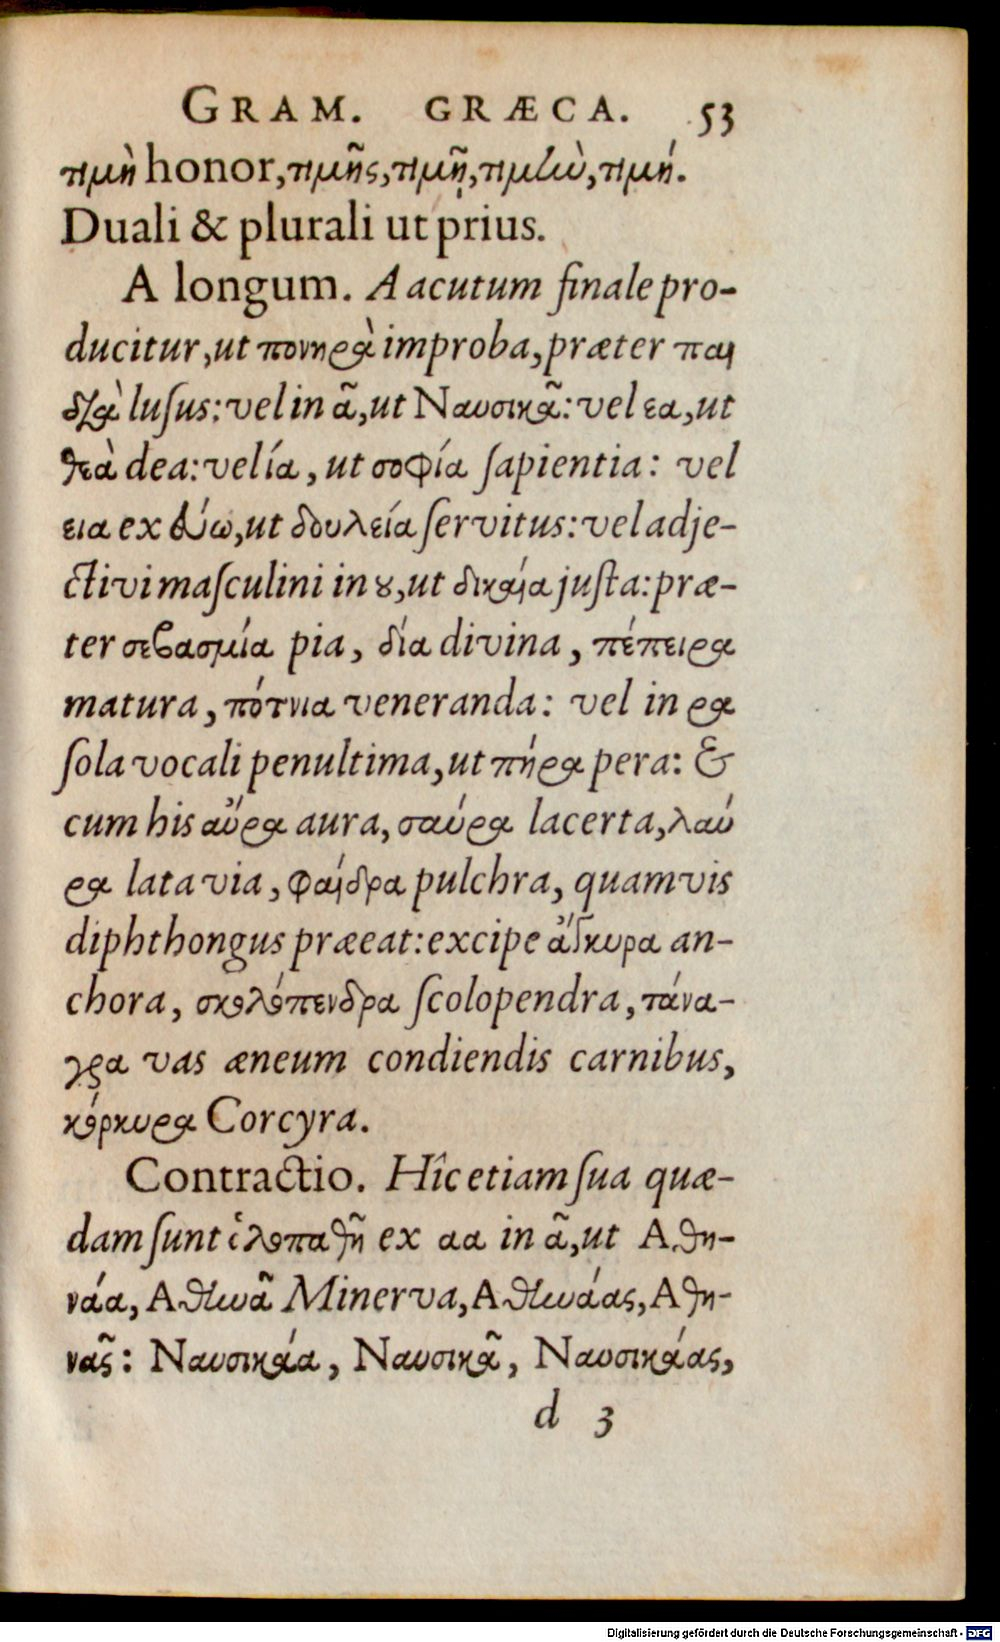 GRAM. GRÆCA. 53
τιμὴ honor, τιμῆς, τιμῇ, τιμὴν, τιμή.
Duali & plurali ut prius.
A longum. A acutum finale pro-
ducitur, ut πονηρὰ improba, præter παι
διὰ luſus: vel in ᾶ, ut Ναυσικᾶ: vel εα, ut
θεὰ dea: vel ία, ut σοφία ſapientia: vel
εια ex εύω, ut δουλεία ſervitus: vel adje-
ctivi maſculini in ȣ, ut δικαία juſta: præ-
ter σεβασμία pia, δία divina, πέπειρα
matura, πότνια veneranda: vel in ρα
ſola vocali penultima, ut πήρα pera: &
cum his αὔρα aura, σαύρα lacerta, λαύ
ρα lata via, φαίδρα pulchra, quamvis
diphthongus præeat: excipe ἄγκυρα an-
chora, σκολόπενδρα ſcolopendra, τάνα-
γρα vas æneum condiendis carnibus,
κόρκυρα Corcyra.
Contractio. Hîc etiam ſua quæ-
dam ſunt ὁλοπαθῆ ex αα in ᾶ, ut Αθη-
νάα, Αθηνᾶ Minerva, Αθηνάας, Αθη-
νᾶς: Ναυσικάα, Ναυσικᾶ, Ναυσικάας,
d 3
Digitalisierung gefördert durch die Deutsche Forschungsgemeinschaft - DFG